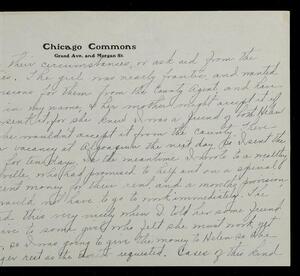 Chicago Commons
Grand Ave. and Morgan St.
their circumstances, or ask aid from the
The girl was nearly frantic, and wanted
for them from the County Agent, and have
in my name, & her mother might accept it if
sent it, for she knew I was a friend of
she wouldn't accept it from the County. There
a vacancy at Algonquin the next day, so I sent the
for ten days. In the meantime I wrote to a
who had promised to help out on a special
money for their rent, and a months pension,
would not have to go to work immediately. The
this very nicely when I told her some friend
to some girl who felt she must work yet
so I was going to give the money to Helen so she
rest as the doctor requested. Cases of this kind